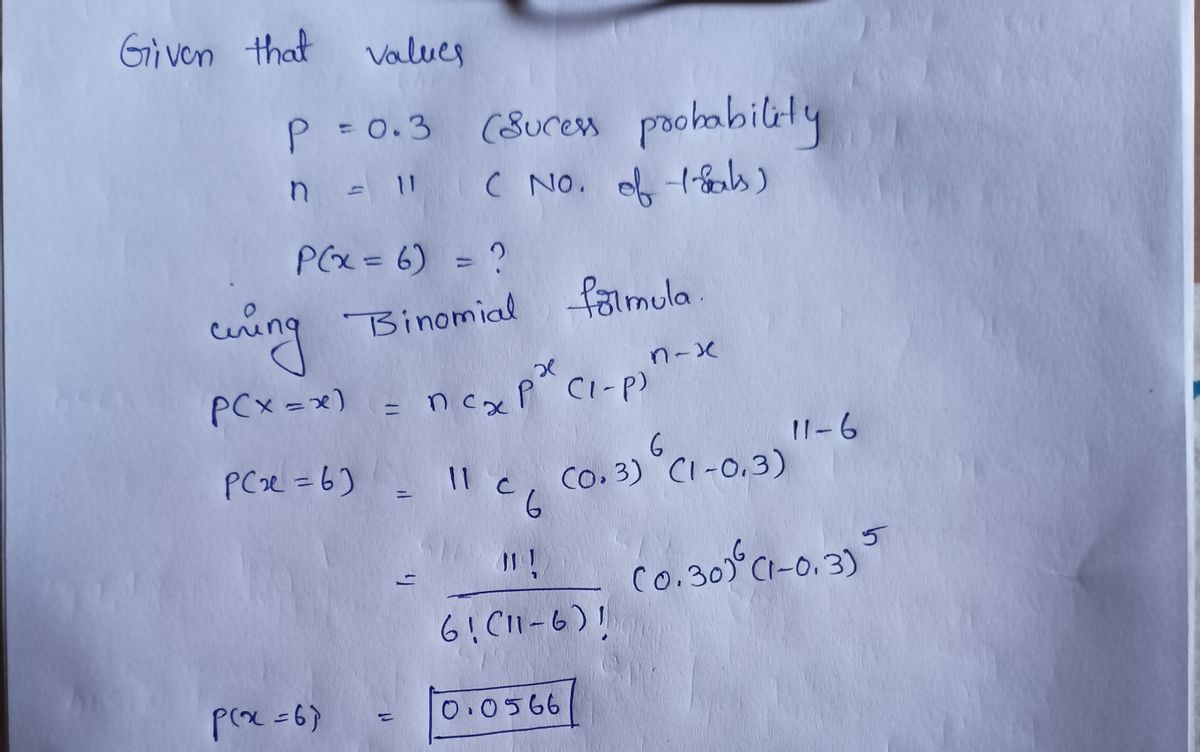 Given that values
p = 0.3 (Sucess probability
n = 11 ( NO. of trials)
P(x = 6) = ?
using Binomial formula.
P(X = x) = n c x p^x (1-p)^n-x
P(x = 6) = 11 c 6 (0.3)^6 (1-0.3)^11-6
= 11! / 6! (11-6)! (0.30)^6 (1-0.3)^5
P(x = 6) = 0.0566